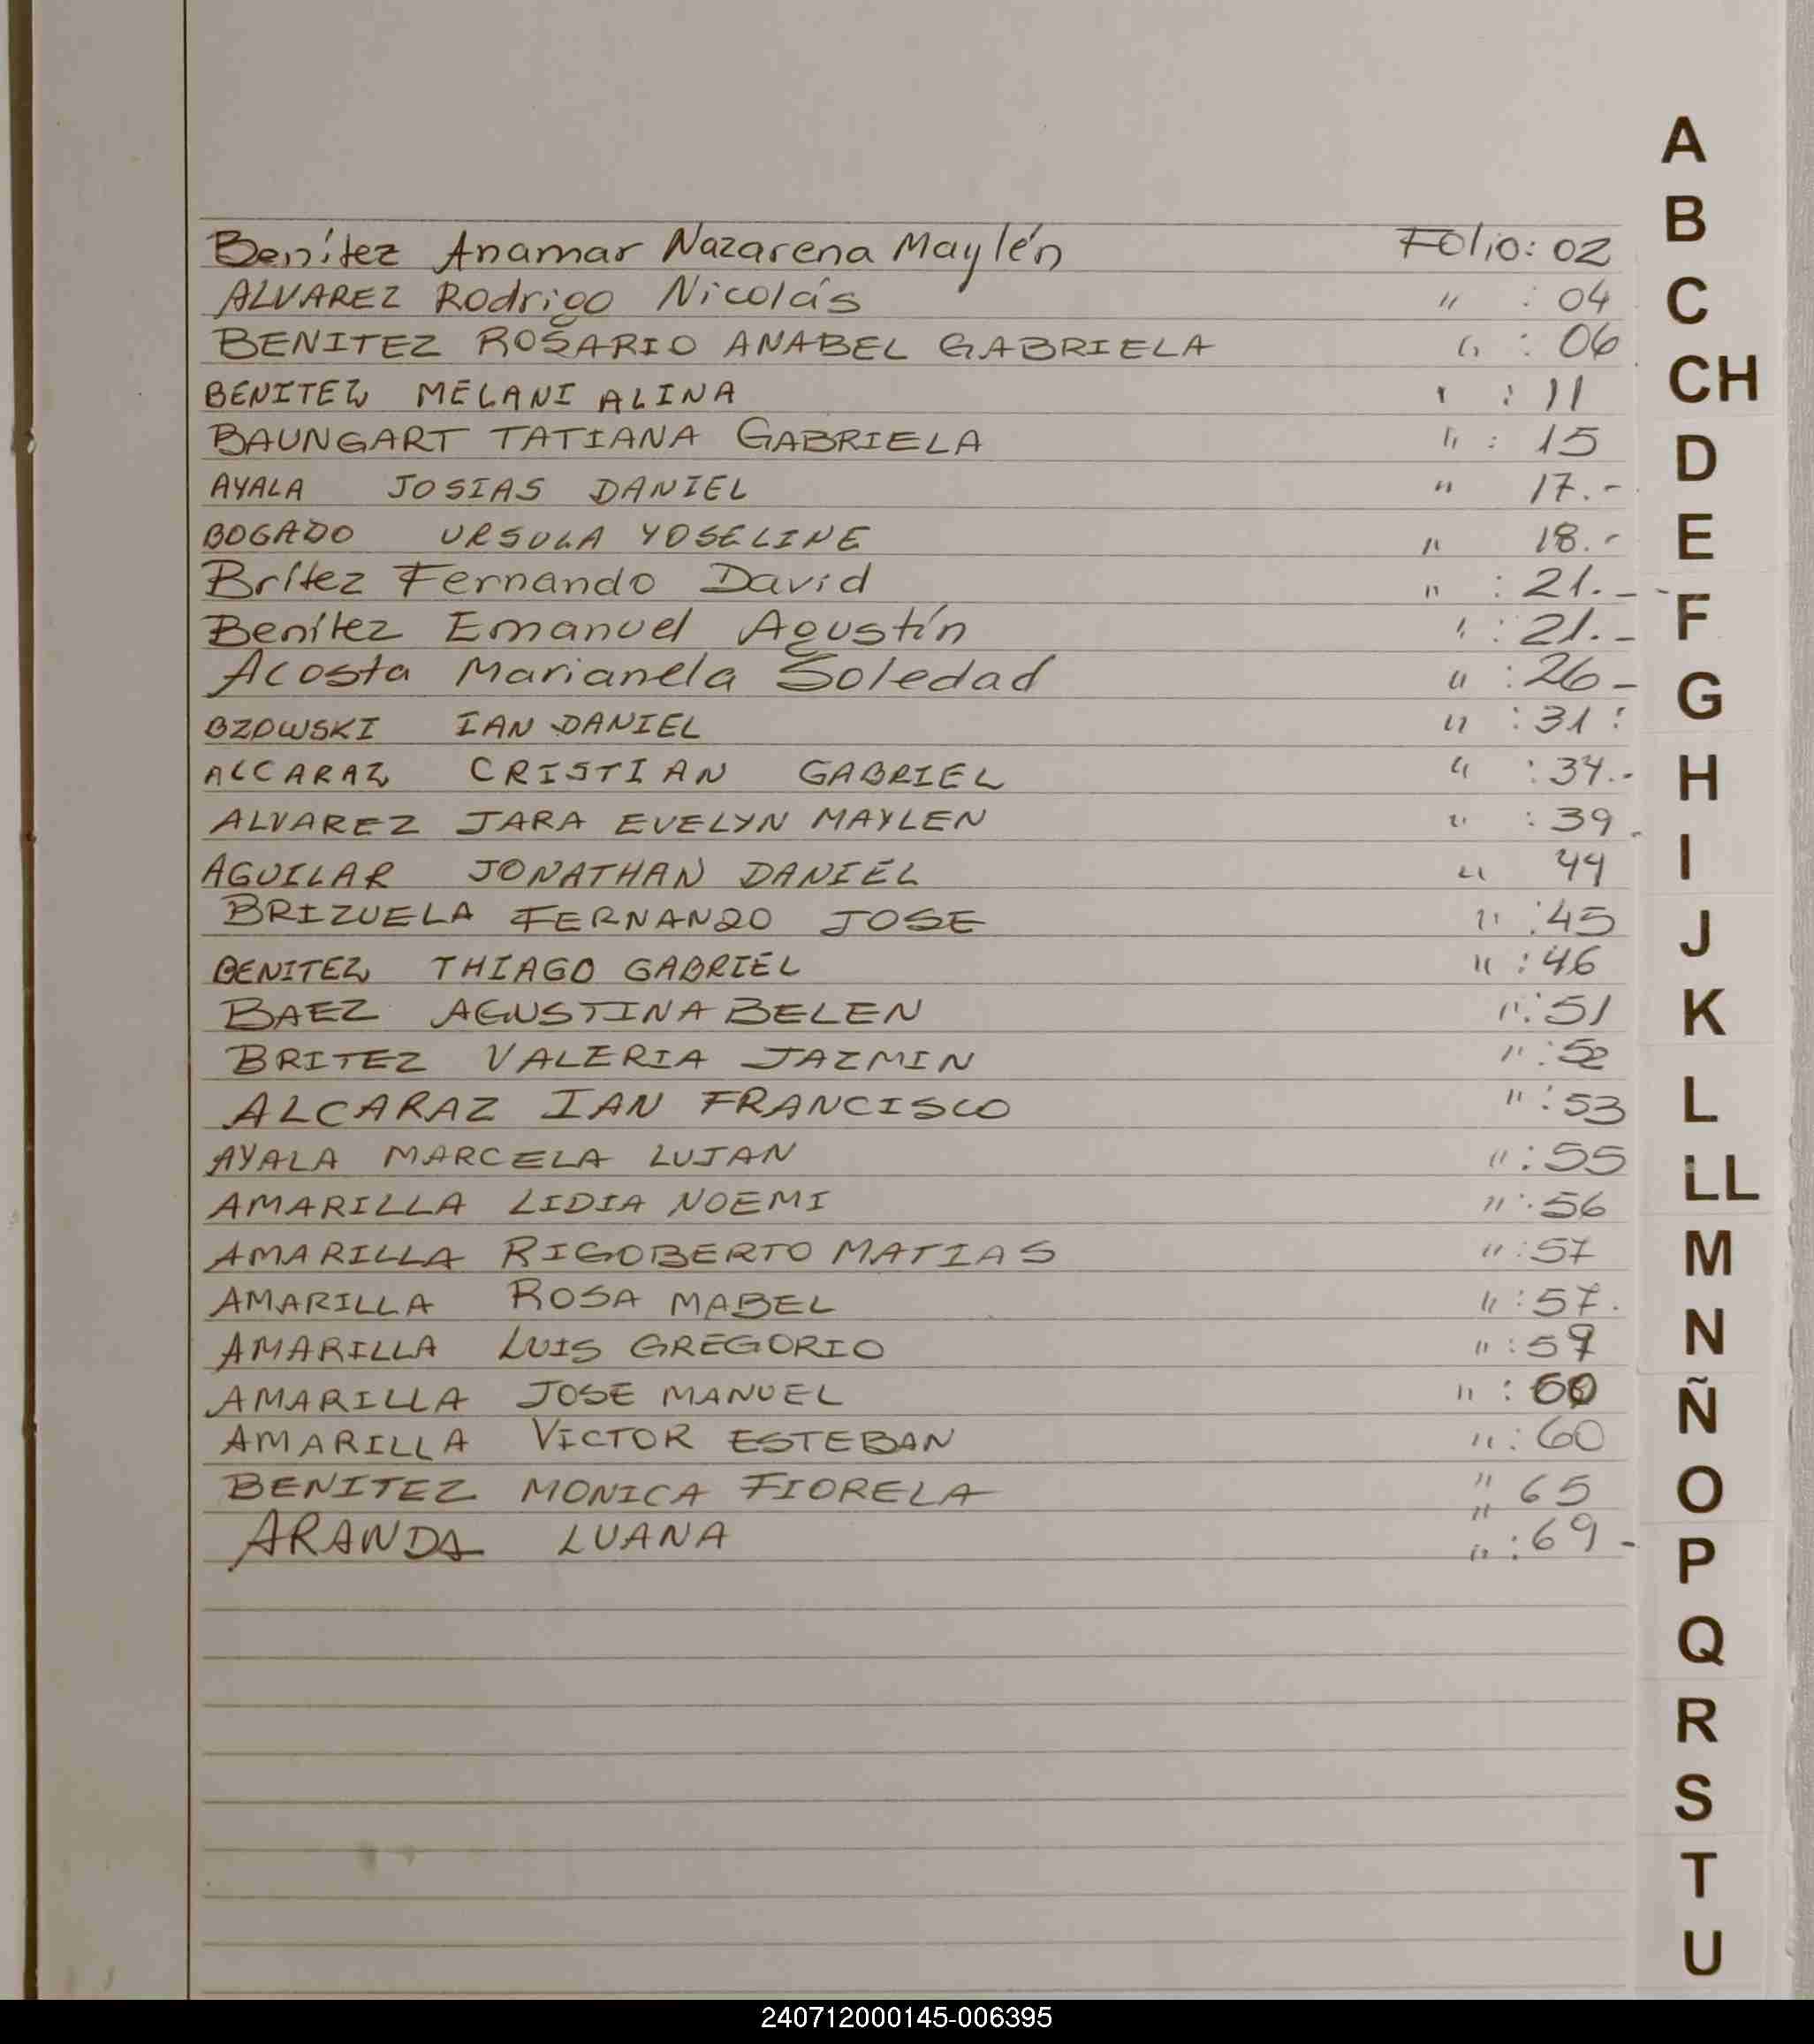 Benítez Anamar Nazarena Maylén Folio: 02
ALVAREZ Rodrigo Nicolás " : 04
BENITEZ ROSARIO ANABEL GABRIELA " : 06
BENITEZ MELANI ALINA " : 11
BAUNGART TATIANA GABRIELA " : 15
AYALA JOSIAS DANIEL " 17.-
BOGADO URSULA YOSELINE " 18.-
Brítez Fernando David " : 21.-
Benítez Emanuel Agustín " : 21.-
Acosta Marianela Soledad " : 26-
BZOWSKI IAN DANIEL " : 31:
ALCARAZ CRISTIAN GABRIEL " : 34.-
ALVAREZ JARA EVELYN MAYLEN " : 39.
AGUILAR JONATHAN DANIEL " 44
BRIZUELA FERNANDO JOSE " : 45
BENITEZ THIAGO GABRIEL " : 46
BAEZ AGUSTINA BELEN " : 51
BRITEZ VALERIA JAZMIN " : 52
ALCARAZ IAN FRANCISCO " : 53
AYALA MARCELA LUJAN " : 55
AMARILLA LIDIA NOEMI " : 56
AMARILLA RIGOBERTO MATIAS " : 57
AMARILLA ROSA MABEL " : 57.
AMARILLA LUIS GREGORIO " :
AMARILLA JOSE MANUEL " : 60
AMARILLA VICTOR ESTEBAN " : 60
BENITEZ MONICA FIORELA " 65
"
ARANDA LUANA " : 69-
A
B
C
CH
D
E
F
G
H
I
J
K
L
LL
M
N
Ñ
O
P
Q
R
S
T
U
240712000145-006395